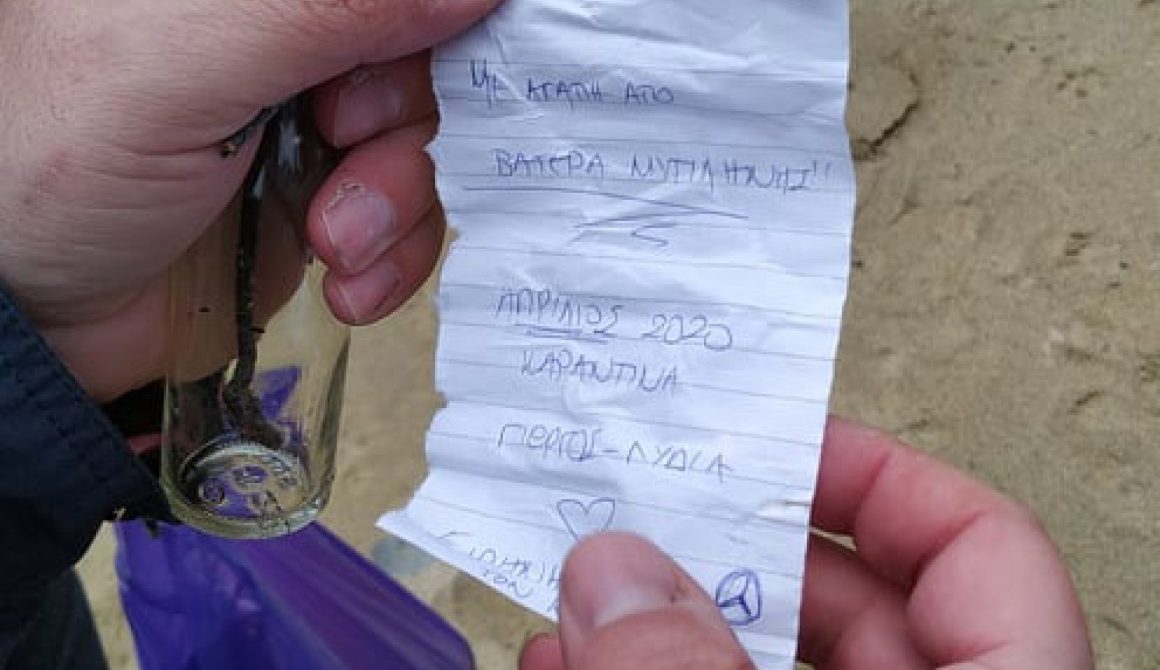 ΜΕ ΑΓΑΠΗ ΑΠΟ
ΒΑΤΕΡΑ ΜΥΤΙΛΗΝΗΣ!!
ΑΠΡΙΛΙΟΣ 2020
ΚΑΡΑΝΤΙΝΑ
ΛΥΔΙΑ
ΤΟΝ